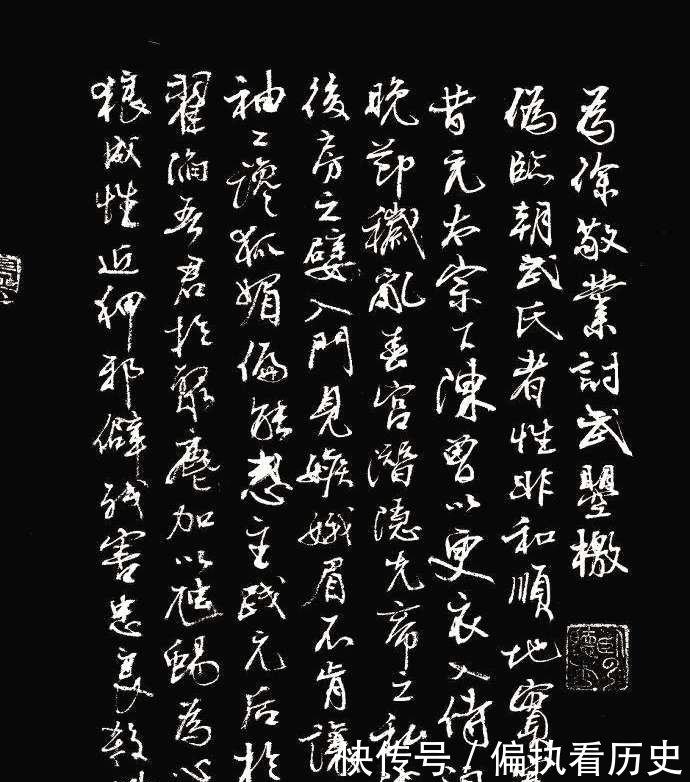 為徐敬業討武曌檄
偽臨朝武氏者性非和順地實
昔充太宗下陳曾以更衣入侍
晚節穢亂春宮潛隱先帝之私
後房之嬖入門見嫉娥眉不肯讓
袖工讒狐媚偏能惑主踐元后於
翟陷吾君於聚麀加以虺蜴為心
狼成性近狎邪僻殘害忠良殺
快传号 / 偏执看历史